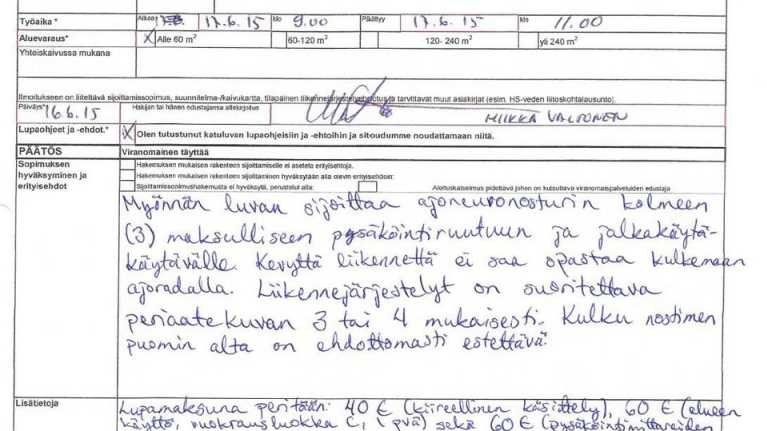 Työaika* Alkaa 17.6.15 klo 9.00 Päättyy 17.6.15 klo 11.00
Aluevaraus* X Alle 60 m² 60-120 m² 120- 240 m² yli 240 m²
Yhteiskaivussa mukana
Ilmoitukseen on liitettävä sijoittamissopimus, suunnitelma-/kaivukartta, tilapäinen ja tarvittavat muut asiakirjat (esim. HS-veden liitoskohtalausunto).
Päiväys* 16.6.15 Hakijan tai hänen edustajansa allekirjoitus
MIIKKA VALTONEN
Lupaohjeet ja -ehdot.* X Olen tutustunut katuluvan lupaohjeisiin ja -ehtoihin ja sitoudumme noudattamaan niitä.
PÄÄTÖS Viranomainen täyttää
Sopimuksen hyväksyminen ja erityisehdot
Hakemuksen mukaisen rakenteen sijoittamiselle ei aseteta erityisehtoja.
Hakemuksen mukaisen rakenteen sijoittaminen hyväksytään alla olevin erityisehdoin:
Sijoittamissopimushakemusta ei hyväksytä, perustelut alla: Aloituskatselmus pidettävä johon on kutsuttava viranomaispalveluiden edustaja
Myönnän luvan sijoittaa ajoneuvonosturin kolmeen
(3) maksulliseen pysäköintiruutuun ja jalkakäytä-
käytävälle. Kevyttä liikennettä ei saa opastaa kulkemaan
ajoradalla. Liikennejärjestelyt on suoritettava
periaatekuvan 3 tai 4 mukaisesti. Kulku nostimen
puomin alta on ehdottomasti estettävä.
Lisätietoja Lupamaksuna peritään: 40 € (kiireellinen käsittely), 60 € (alueen
käyttö, vuokrausluokka C, 1 pvä) sekä 60 € (pysäköintimittareiden